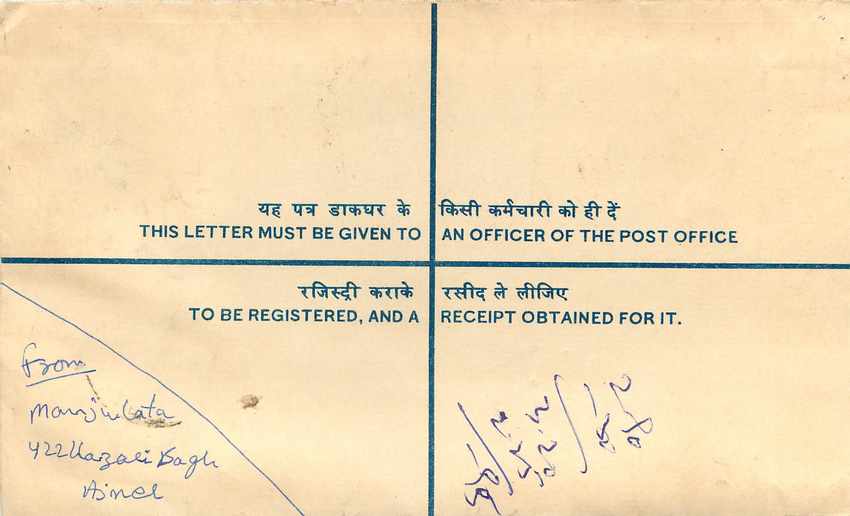 यह पत्र डाकघर के किसी कर्मचारी को ही दें
THIS LETTER MUST BE GIVEN TO AN OFFICER OF THE POST OFFICE
रजिस्ट्री कराके रसीद ले लीजिए
TO BE REGISTERED, AND A RECEIPT OBTAINED FOR IT.
From
Manju Lata
422